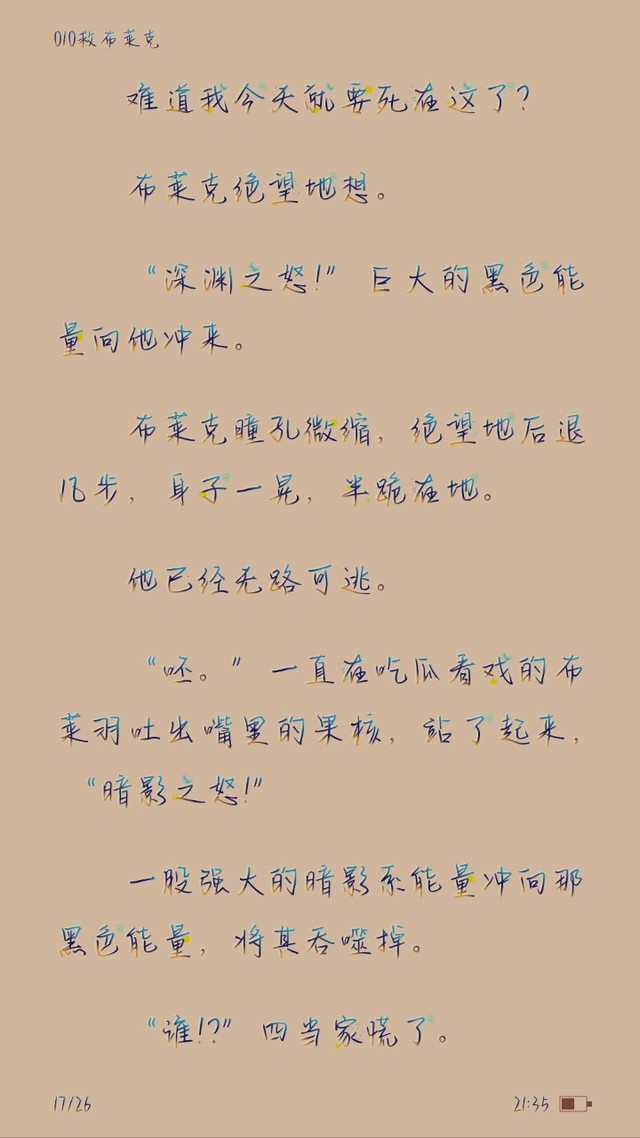 010救布莱克
难道我今天就要死在这了?
布莱克绝望地想。
“深渊之怒!” 巨大的黑色能
量向他冲来。
布莱克瞳孔微缩, 绝望地后退
几步, 身子一晃, 半跪在地。
他已经无路可逃。
“呸。” 一直在吃瓜看戏的布
莱羽吐出嘴里的果核, 站了起来,
“暗影之怒!”
一股强大的暗影系能量冲向那
黑色能量, 将其吞噬掉。
“谁!?” 四当家慌了。
17/26
21:35